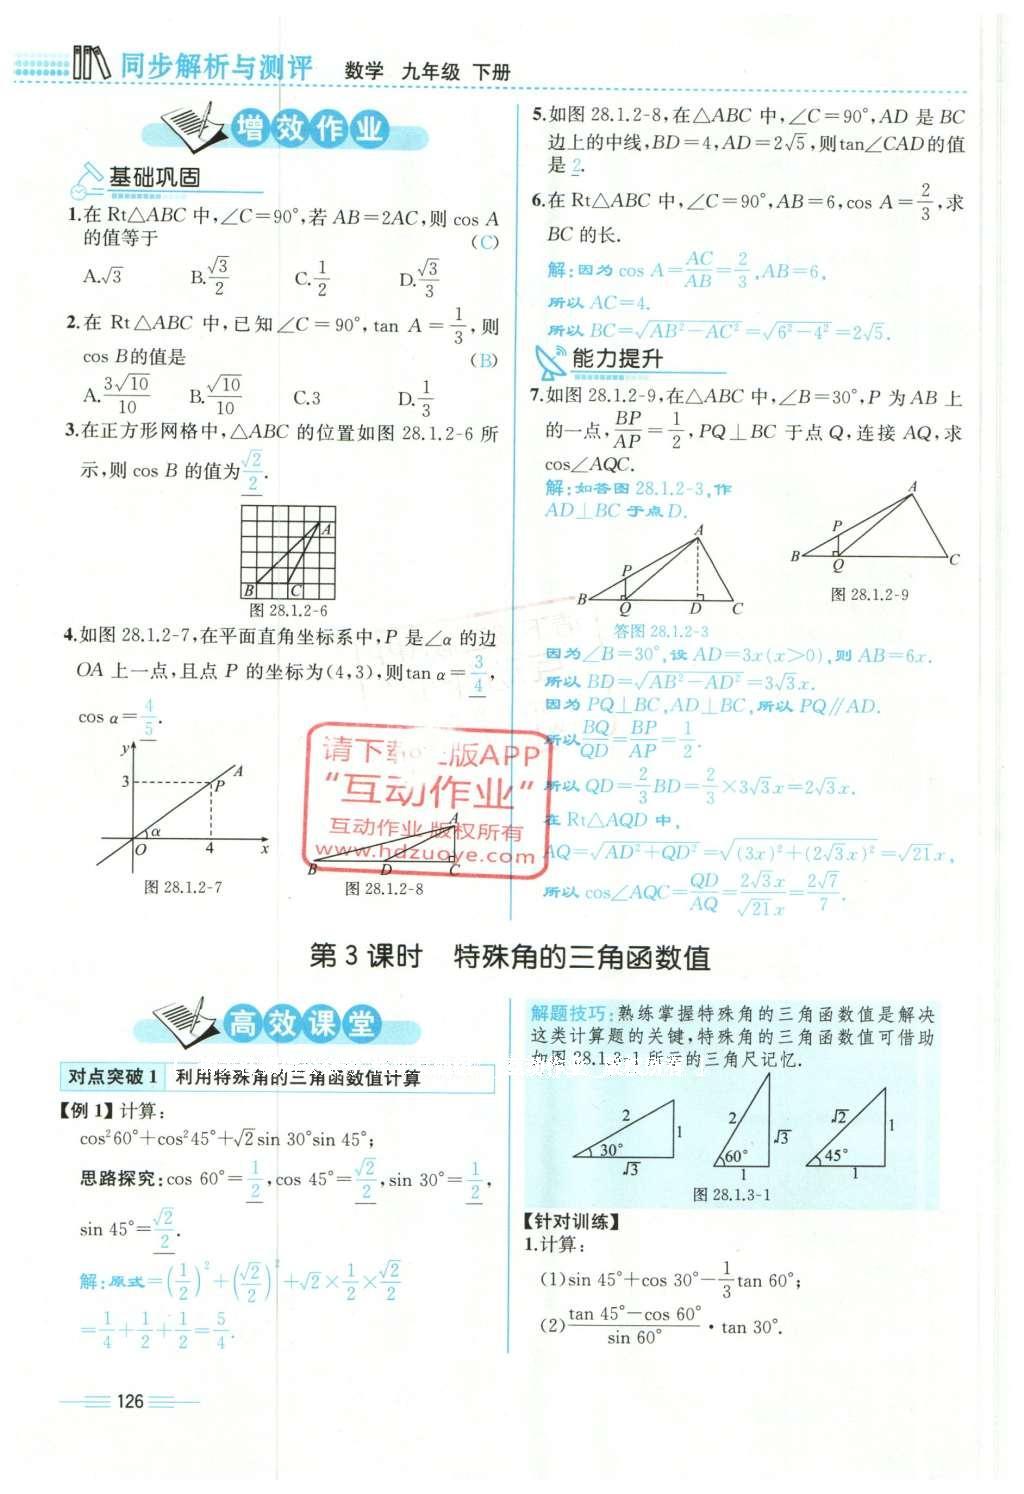 同步解析与测评 数学 九年级 下册
增效作业
基础巩固
1.在 Rt△ABC 中,∠C=90°,若 AB=2AC,则 cos A
的值等于 (C)
A.√3 B.√3/2 C.1/2 D.√3/3
2.在 Rt△ABC 中,已知∠C=90°,tan A=1/3,则
cos B的值是 (B)
A.3√10/10 B.√10/10 C.3 D.1/3
3.在正方形网格中,△ABC 的位置如图 28.1.2-6 所
示,则 cos B 的值为√2/2.
A
B C
图 28.1.2-6
4.如图 28.1.2-7,在平面直角坐标系中,P 是∠α 的边
OA 上一点,且点 P 的坐标为(4,3),则tan α=3/4,
cos α=4/5.
y A
3 P
α
O 4 x
图 28.1.2-7
A
B D C
图 28.1.2-8
5.如图 28.1.2-8,在△ABC 中,∠C=90°,AD 是 BC
边上的中线,BD=4,AD=2√5,则tan∠CAD的值
是 2.
6.在 Rt△ABC 中,∠C=90°,AB=6,cos A=2/3,求
BC 的长.
解:因为 cos A=AC/AB=2/3,AB=6,
所以 AC=4.
所以 BC=√AB²-AC²=√6²-4²=2√5.
能力提升
7.如图 28.1.2-9,在△ABC 中,∠B=30°,P 为 AB 上
的一点,BP/AP=1/2,PQ⊥BC 于点 Q,连接 AQ,求
cos∠AQC.
解:如答图 28.1.2-3,作
AD⊥BC 于点 D.
A
P
B Q C
图 28.1.2-9
A
P
B Q D C
答图 28.1.2-3
因为∠B=30°,设 AD=3x(x>0),则 AB=6x.
所以 BD=√AB²-AD²=3√3x.
因为 PQ⊥BC,AD⊥BC,所以 PQ∥AD.
所以BQ/QD=BP/AP=1/2.
所以 QD=2/3BD=2/3×3√3x=2√3x.
在 Rt△AQD 中,
AQ=√AD²+QD²=√(3x)²+(2√3x)²=√21x,
所以 cos∠AQC=QD/AQ=2√3x/√21x=2√7/7.
“互动作业”
互动作业 版权所有
www.hdzuoye.com
第 3 课时 特殊角的三角函数值
高效课堂
对点突破 1 利用特殊角的三角函数值计算
【例 1】计算:
cos²60°+cos²45°+√2sin 30°sin 45°;
思路探究:cos 60°=1/2,cos 45°=√2/2,sin 30°=1/2,
sin 45°=√2/2.
解:原式=(1/2)²+(√2/2)²+√2×1/2×√2/2
=1/4+1/2+1/2=5/4.
解题技巧:熟练掌握特殊角的三角函数值是解决
这类计算题的关键,特殊角的三角函数值可借助
如图 28.1.3-1 所示的三角尺记忆.
2 1 30° √3
2 √3 60° 1
√2 1 45° 1
图 28.1.3-1
【针对训练】
1.计算:
(1)sin 45°+cos 30°-1/3tan 60°;
(2)tan 45°-cos 60°/sin 60°·tan 30°.
126